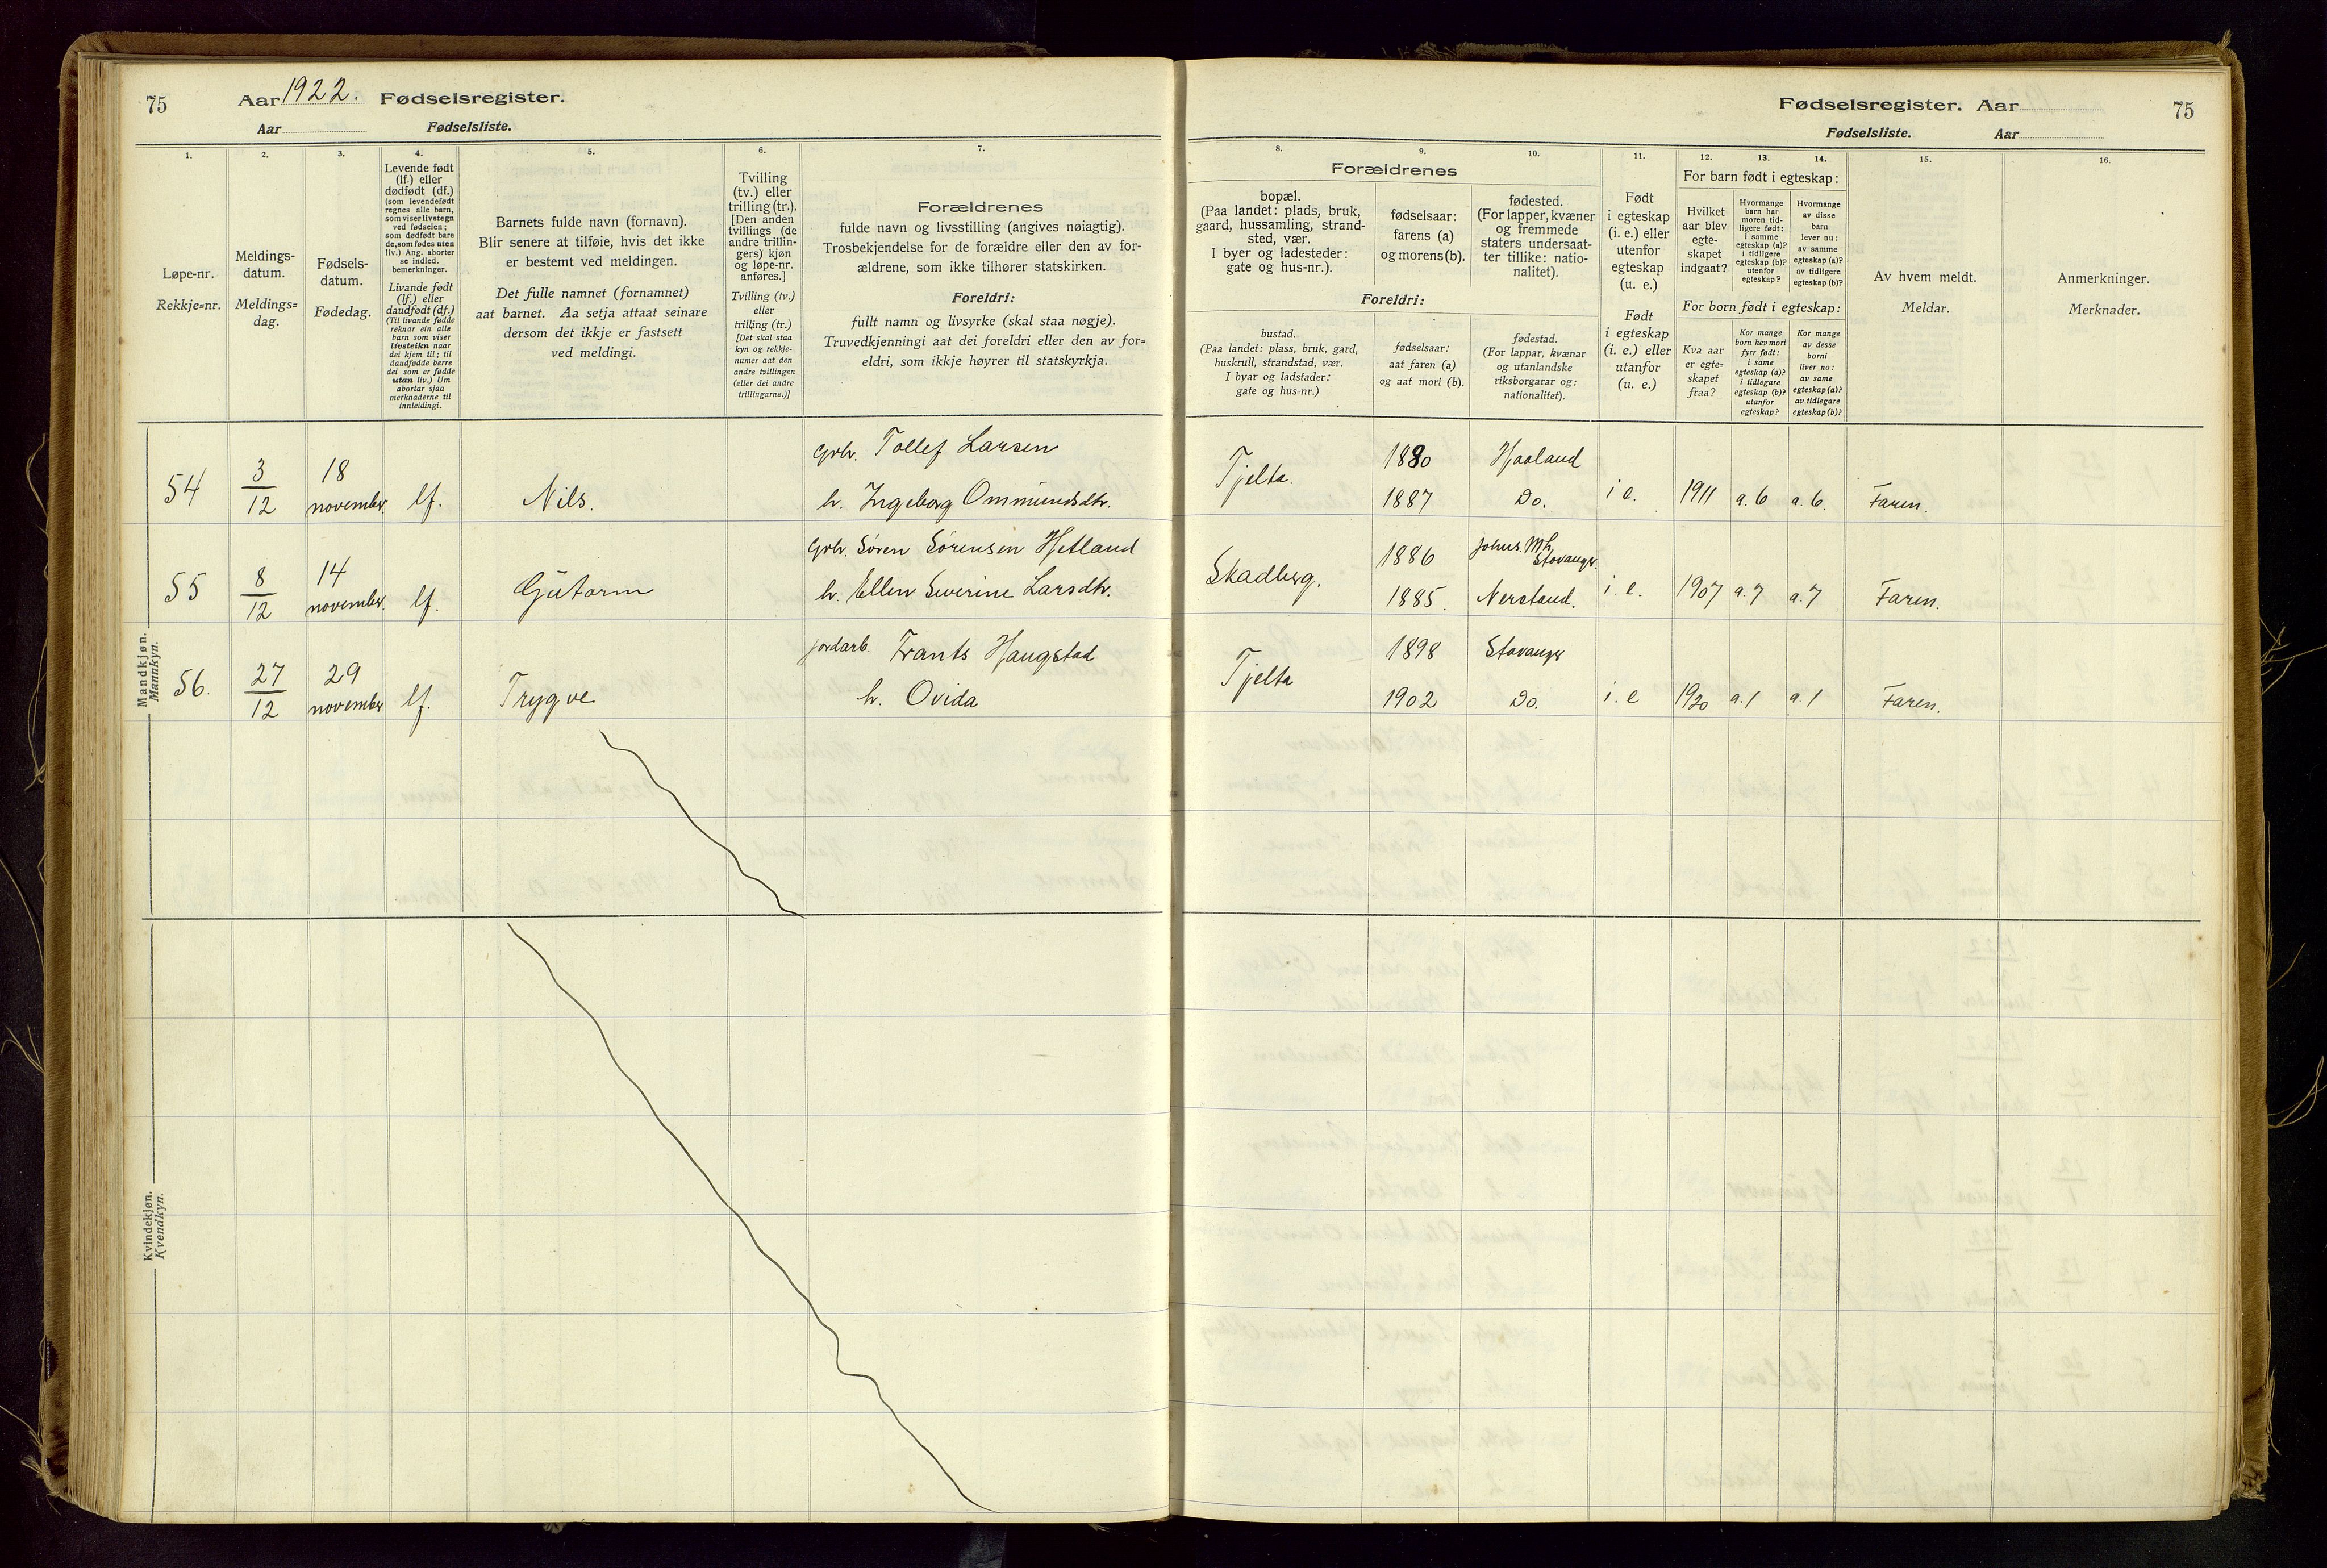 75
Aar 1922. Fødselsregister.
Aar Fødselsliste.
1.
2.
3.
4.
5.
6.
7.
Løpe-nr.
Rekkje=nr.
Meldings-
datum.
Meldings=
dag.
Fødsels-
datum.
Fødedag.
Levende født
(lf.) eller
dødfødt (df.)
(som levendefødt
regnes alle barn,
som viser livstegn
ved fødselen;
som dødfødt bare
de, som fødes uten
liv.) Ang. aborter
se indled.
bemerkninger.
Livande født
(lf.) eller
daudfødt (df.)
(Til livande fødde
reknar ein alle
barn som viser
livsteikn naar
dei kjem til; til
daudfødde berre
dei som er fødde
utan liv.) Um
abortar sjaa
merknaderne til
innleidingi.
Barnets fulde navn (fornavn).
Blir senere at tilføie, hvis det ikke
er bestemt ved meldingen.
Det fulle namnet (fornamnet)
aat barnet. Aa setja attaat seinare
dersom det ikkje er fastsett
ved meldingi.
Tvilling
(tv.) eller
trilling (tr.).
[Den anden
tvillings (de
andre trillin-
gers) kjøn
og løpe-nr.
anføres.]
Tvilling (tv.)
eller
trilling (tr.)
[Det skal staa
kyn og rekkje-
numer aat den
andre tvillingen
(eller dei andre
trillingarne.)]
Forældrenes
fulde navn og livsstilling (angives nøiagtig).
Trosbekjendelse for de forældre eller den av for-
ældrene, som ikke tilhører statskirken.
Foreldri:
fullt namn og livsyrke (skal staa nøgje).
Truvedkjenningi aat dei foreldri eller den av for=
eldri, som ikkje høyrer til statskyrkja.
Mandkjøn.
Mannkyn.
54
3
12
18
november.
lf.
Nils.
Grbr. Tollef Larsen
h. Ingeborg Ommundsdtr.
55
8
12
14
november.
lf.
Gutorm
Grbr. Søren Sørensen Hetland
h. Ellen Severine Larsdtr.
56.
27
12
29
november
lf.
Trygve
jordarb. Frants Haugstad
h. Ovida
Kvindekjøn.
Kvendkyn.
Fødselsregister. Aar
75
Fødselsliste. Aar
8.
9.
10.
11.
12.
13.
14.
15.
16.
Forældrenes
bopæl.
(Paa landet: plads, bruk,
gaard, hussamling, strand-
sted, vær.
I byer og ladesteder:
gate og hus-nr.).
fødselsaar:
farens (a)
og morens (b).
fødested.
(For lapper, kvæner
og fremmede
staters undersaat-
ter tillike: natio-
nalitet).
Foreldri:
bustad.
(Paa landet: plass, bruk, gard,
huskrull, strandstad, vær.
I byar og ladstader:
gate og hus=nr.)
fødselsaar:
aat faren (a)
og aat mori (b).
fødestad.
(For lappar, kvænar
og utanlandske
riksborgarar og:
nationalitet).
Født
i egteskap
(i. e.) eller
utenfor
egteskap
(u. e.)
Født
i egteskap
(i. e.) eller
utanfor
(u. e.)
For barn født i egteskap:
Hvilket
aar blev
egte-
skapet
indgaat?
Hvormange
barn har
moren tid-
ligere født:
i samme
egteskap (a)?
i tidligere
egteskap (b)?
utenfor
egteskap?
Hvormange
av disse
barn
lever nu:
av samme
egteskap (a)?
av tidligere
egteskap (b)?
For born født i egteskap:
Kva aar
er egte=
skapet
fraa?
Kor mange
born hev mori
fyrr født:
i same
egteskap (a)?
i tidlegare
egteskap (b)?
utanfor
egteskap?
Kor mange
av desse
borni
liver no:
av same
egteskap (a)?
av tidlegare
egteskap (b)?
Av hvem meldt.
Meldar.
Anmerkninger.
Merknader.
Tjelta.
1880
1887
Haaland
Do.
i e.
1911
a. 6
a. 6.
Faren.
Skadberg.
1886
1885.
Stavanger.
Nerland.
i. e.
1907
a. 7
a. 7
Faren.
Tjelta
1898
1902
Stavanger
Do.
i. e
1920
a. 1
a. 1
Faren.